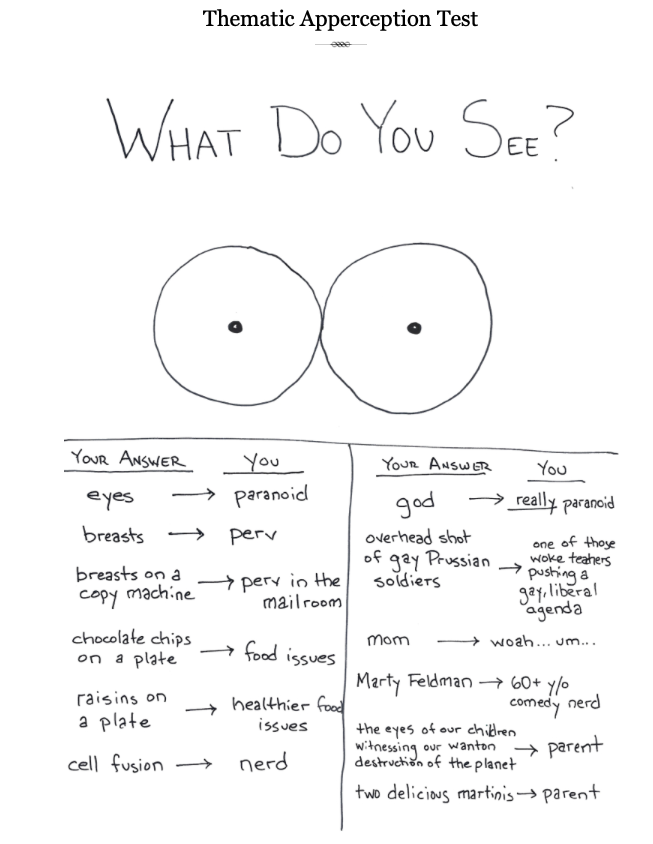 Thematic Apperception Test
WHAT DO YOU SEE?
YOUR ANSWER YOU
eyes → paranoid
breasts → perv
breasts on a
copy machine → perv in the
mailroom
chocolate chips
on a plate → food issues
raisins on
a plate → healthier food
issues
cell fusion → nerd
YOUR ANSWER YOU
god → really paranoid
overhead shot
of gay Prussian
soldiers → one of those
woke teahers
pushing a
gay, liberal
agenda
mom → woah... um...
Marty Feldman → 60+ y/o
comedy nerd
the eyes of our children
witnessing our wanton
destruction of the planet → parent
two delicious martinis → parent